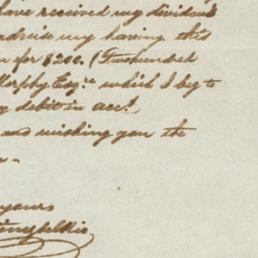 have received my dividend
advise my having this
for $200. (Two hundred
Murphy Esqre which I beg to
debit in acct.
and wishing you the
yours